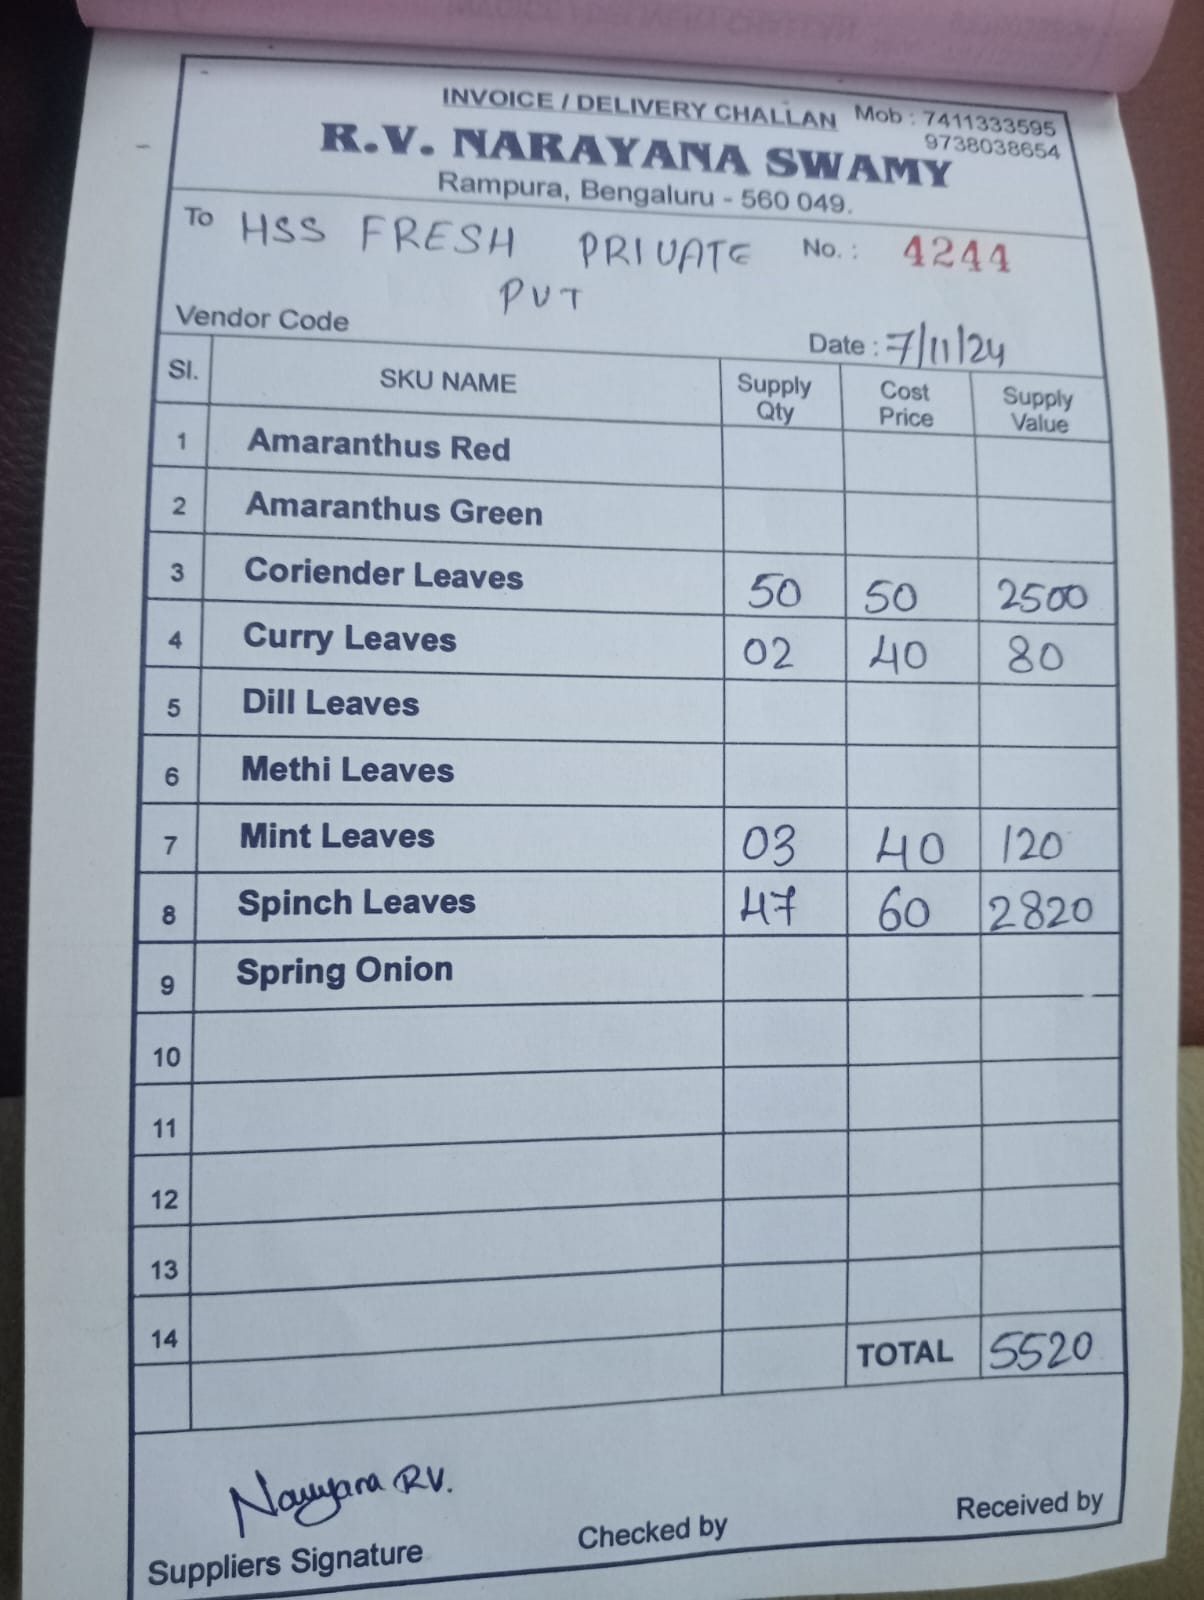 INVOICE / DELIVERY CHALLAN Mob : 7411333595
9738038654
R.V. NARAYANA SWAMY
Rampura, Bengaluru - 560 049.
To HSS FRESH PRIVATE No. : 4244
PVT
Vendor Code Date : 7/11/24
Sl. SKU NAME Supply Qty Cost Price Supply Value
1 Amaranthus Red
2 Amaranthus Green
3 Coriender Leaves 50 50 2500
4 Curry Leaves 02 40 80
5 Dill Leaves
6 Methi Leaves
7 Mint Leaves 03 40 120
8 Spinch Leaves 47 60 2820
9 Spring Onion
10
11
12
13
14 TOTAL 5520
Narayana RV.
Suppliers Signature Checked by Received by